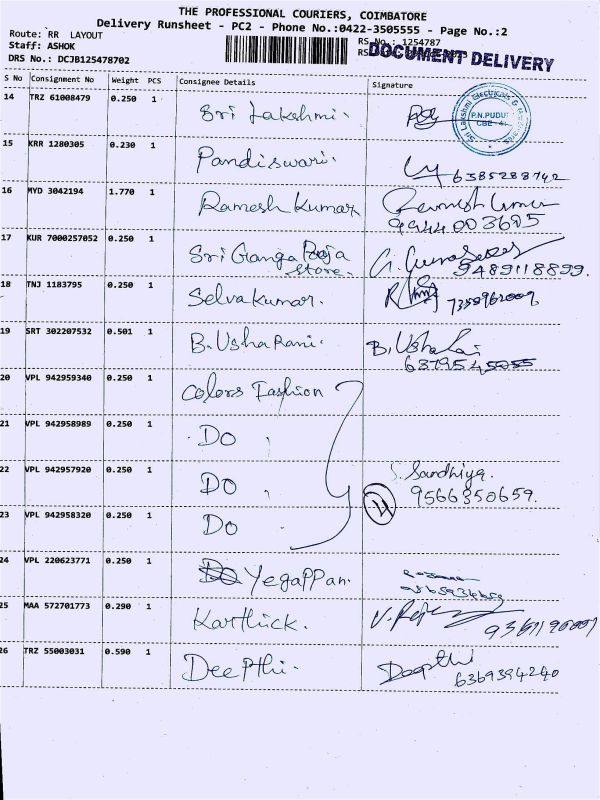 THE PROFESSIONAL COURIERS, COIMBATORE
Delivery Runsheet - PC2 - Phone No.:0422-3505555 - Page No.:2
Route: RR LAYOUT
Staff: ASHOK
DRS No.: DCJB125478702
RS No.: 1254787
DOCUMENT DELIVERY
S No Consignment No Weight PCS Consignee Details Signature
14 TRZ 61008479 0.250 1 Sri Lakshmi.
Sri Lakshmi Electricals &
P.N.PUDUR
CBE - 41
15 KRR 1280305 0.230 1 Pandiswari. 6385288742
16 MYD 3042194 1.770 1 Ramesh Kumar Ramesh Kumar
9944003695
17 KUR 7000257052 0.250 1 Sri Ganga Pooja
Store. G. Gunasekar
9489118899.
18 TNJ 1183795 0.250 1 Selvakumar.
19 SRT 302207532 0.501 1 B. Usha Rani. B. Usha Rani
20 VPL 942959340 0.250 1 Colors Fashion
21 VPL 942958989 0.250 1 Do
22 VPL 942957920 0.250 1 Do S. Sandhiya.
9566350659.
4
23 VPL 942958320 0.250 1 Do
24 VPL 220623771 0.250 1 Yegappan.
25 MAA 572701773 0.290 1 Karthick.
26 TRZ 55003031 0.590 1 Deepthi. Deepthi
6369394240